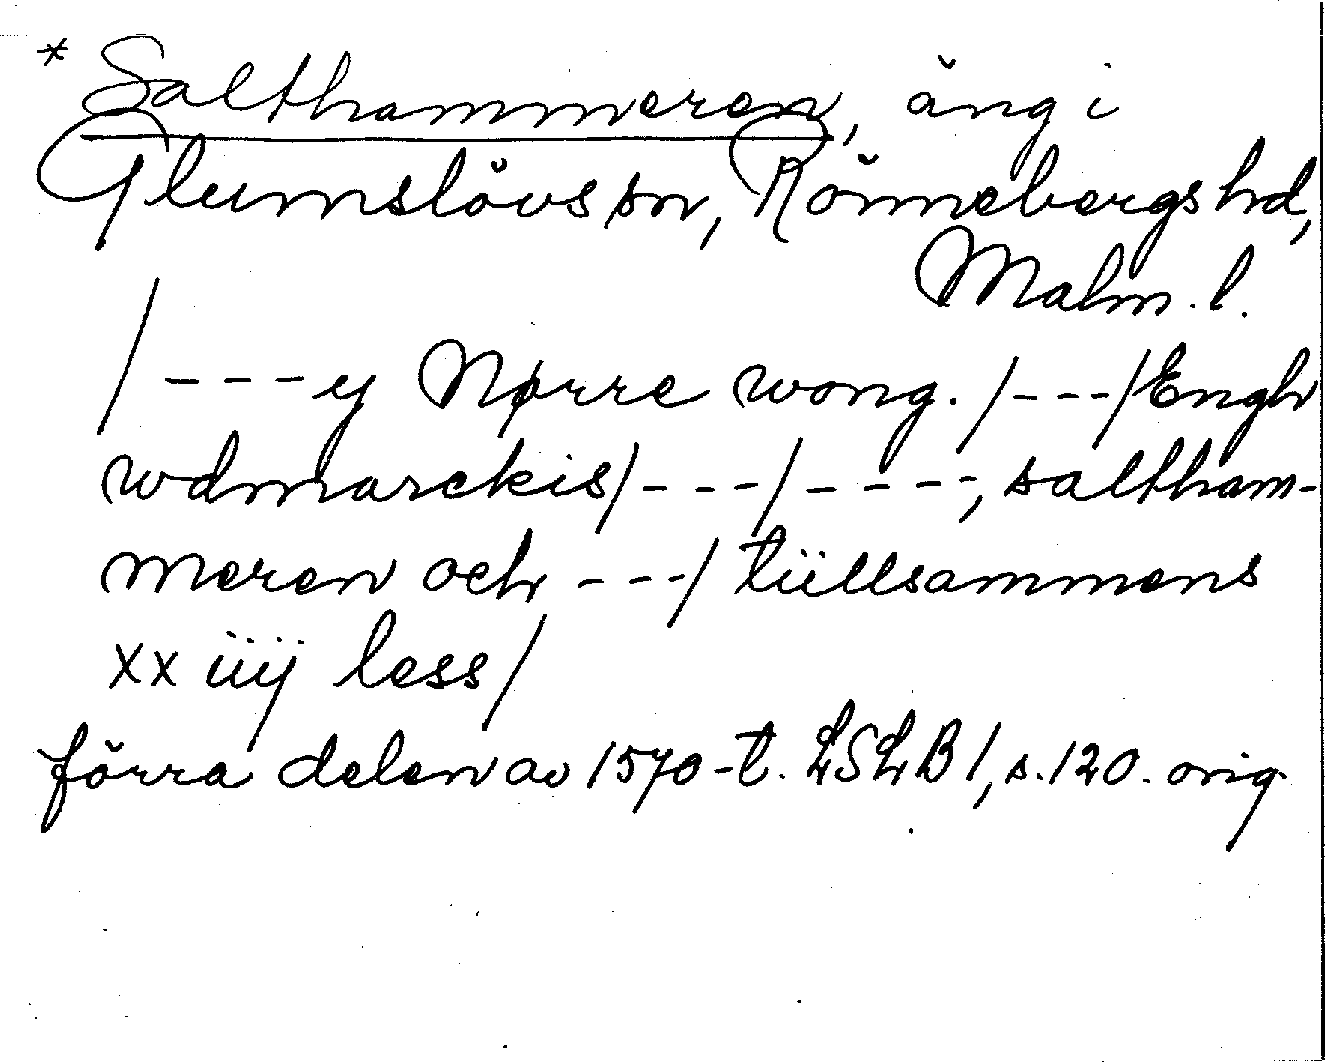 * Salthammeren, äng i
Glumslövs sn, Rönnebergs hd,
Malm. l.
/---y Nørre wong. /---/ Engh
wdmarckis/---/----, saltham-
meren och ---/ tüllsammens
xx iiij less/
förra delen av 1570-t. LSLB 1, s. 120. orig.